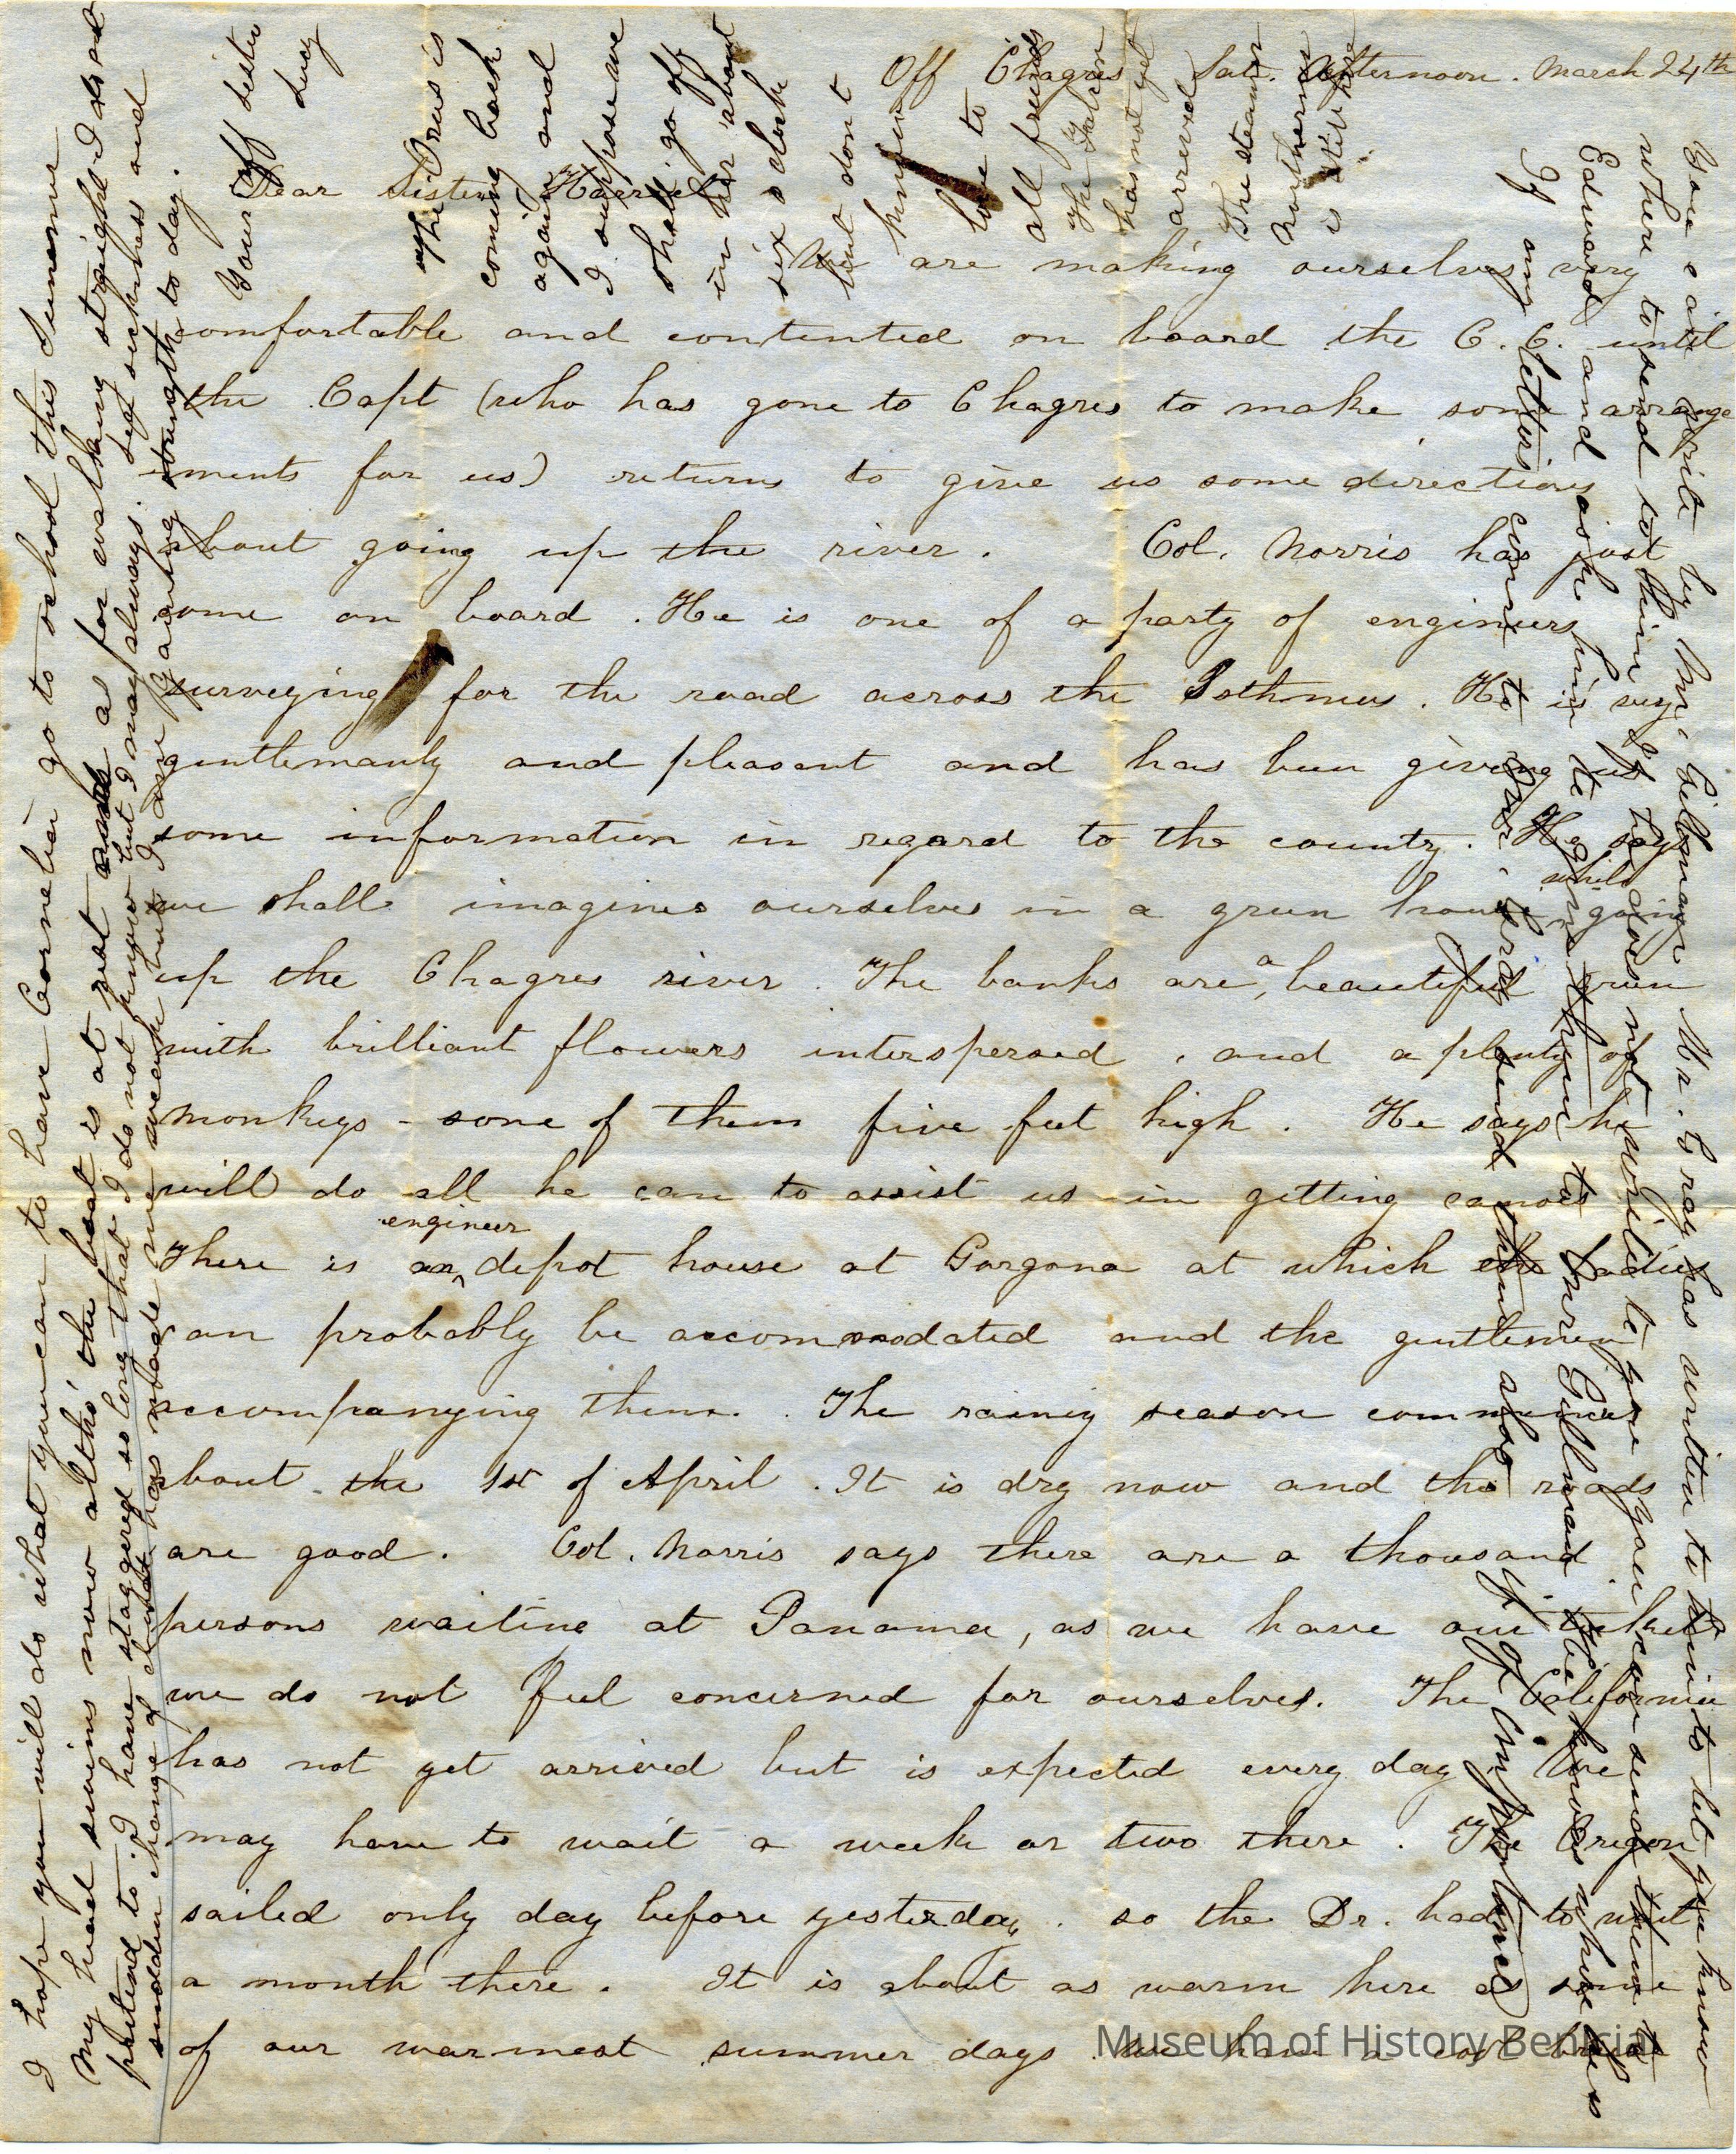 Off Chagres Sat. Afternoon. March 24th
Dear Sister Harriet
We are making ourselves very
comfortable and contented on board the C. C. until
the Capt (who has gone to Chagres to make some arrange
ments for us) returns to give us some directions
about going up the river. Col. Norris has just
come on board. He is one of a party of engineers
surveying for the road across the Isthmus. He is very
gentlemanly and pleasant and has been giving us
some information in regard to the county. He says
we shall imagine ourselves in a green house while going
up the Chagres river. The banks are a beautiful green
with brilliant flowers interspersed, and a plenty of
monkeys - some of them five feet high. He says he
will do all he can to assist us in getting canoes
There is an engineer depot house at Gorgona at which the ladies
can probably be accommodated and the gentlemen
accompanying them. The rainy season commences
about the 1st of April. It is dry now and the roads
are good. Col. Norris says there are a thousand
persons waiting at Panama, as we have our tickets
we do not feel concerned for ourselves. The California
has not yet arrived but is expected every day We
may have to wait a week or two there. The Oregon
sailed only day before yesterday. so the Dr. had to wait
a month there. It is about as warm here as some
of our warmest summer days. We have a cool breeze
I hope you will do what you can to have Cornelia go to school this Summer
My head swims now altho' the boat is at rest as for walking straight I do not
pretend to I have staggered so long that I do not know but I may always. Sea sickness and
sudden change of climate has made me weak but I am gaining strength to day.
Your aff sister
Lucy
The Orus is
coming back
again and
I suppose we
shall go off
in her about
six o clock
but dont
know
love to
all friends
The Falcon
has not yet
arrived
The steamer
Northerner
is still here
You can write by Mr. Gilman Mr. Gray has written to him to let you know
where to send to him if he does not write to you you can send them to
Edward and ask him to hand them to Mr Gillman if he knows where he is
If any letters come to our friends send them also if of importance
Museum of History Benicia